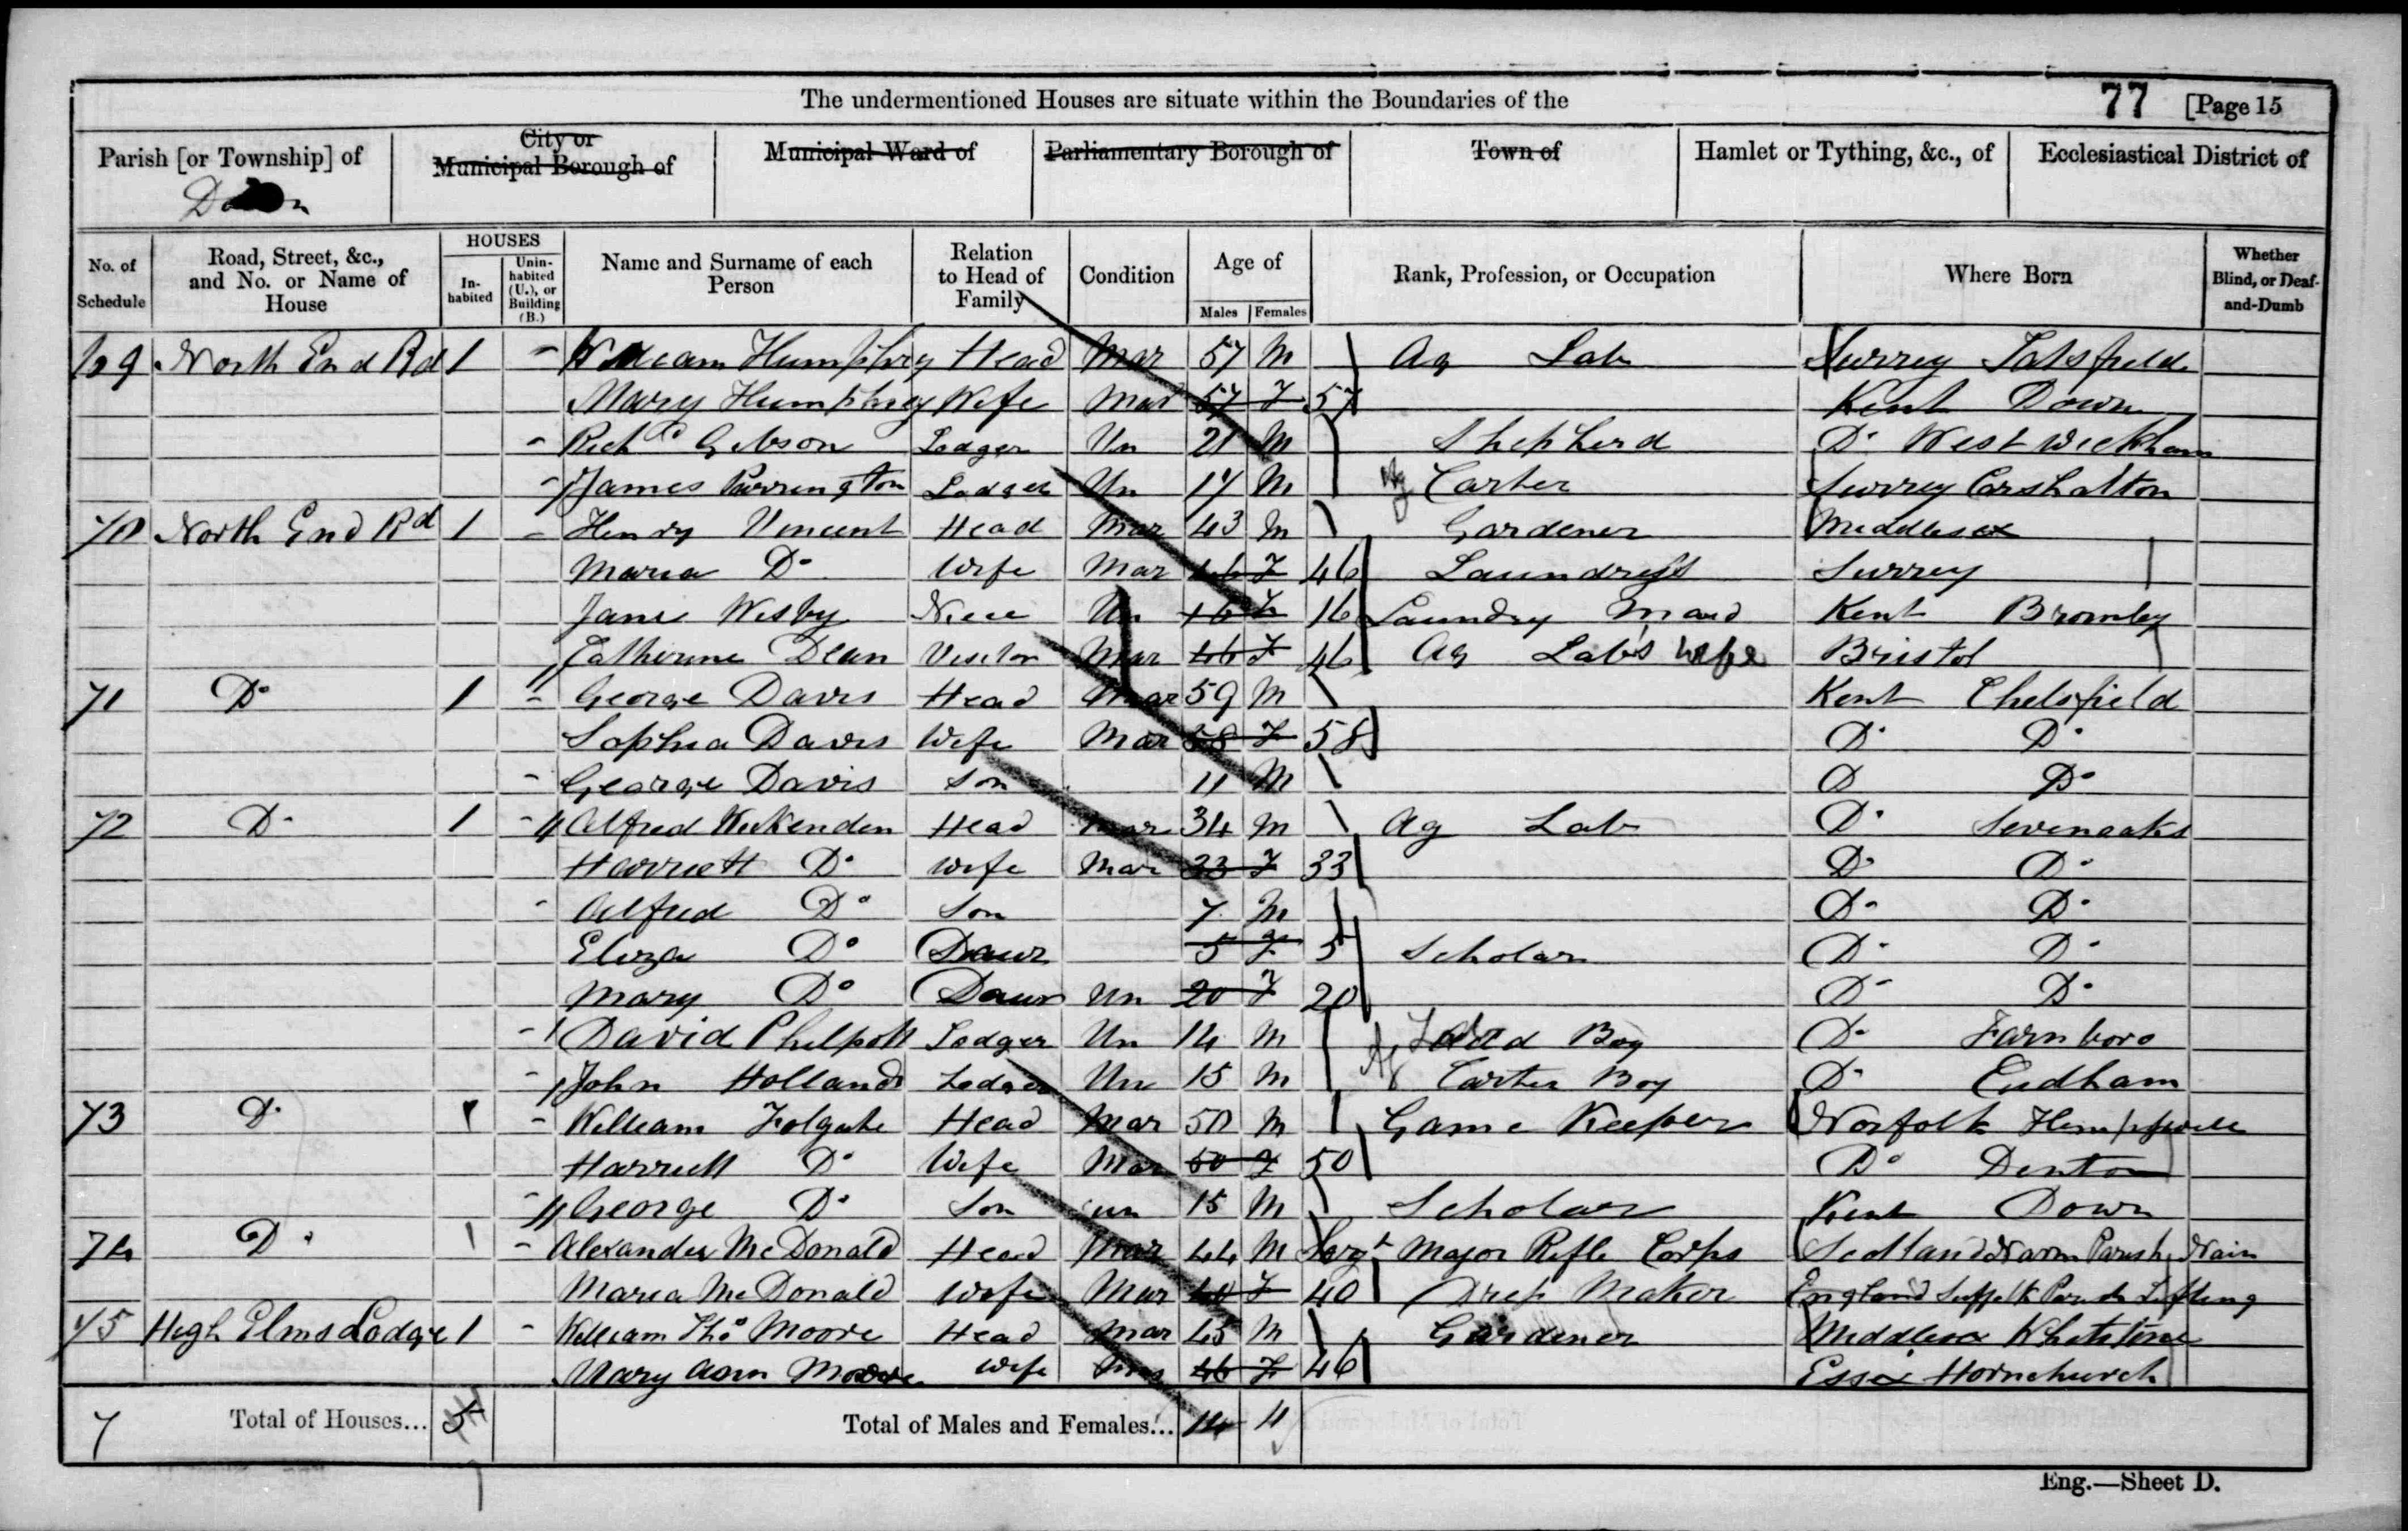 The undermentioned Houses are situate within the Boundaries of the 77 [Page 15
Parish [or Township] of City or Municipal Borough of Municipal Ward of Parliamentary Borough of Town of Hamlet or Tything, &c., of Ecclesiastical District of
No. of Schedule Road, Street, &c., and No. or Name of House HOUSES In-habited Unin-habited (U.), or Building (B.) Name and Surname of each Person Relation to Head of Family Condition Age of Males Females Rank, Profession, or Occupation Where Born Whether Blind, or Deaf-and-Dumb
69 North End Rd 1 William Humphrey Head Mar 57 M Ag Lab Surrey Tatsfield
Mary Humphrey Wife Mar 57 F 57 Kent Down
Richd Gibson Lodger Un 21 M Shepherd Do West Wickham
James Purrington Lodger Un 17 M Ag Carter Surrey Carshalton
70 North End Rd 1 Henry Vincent Head Mar 43 M Gardener Middlesex
Maria Do Wife Mar 46 F 46 Laundress Surrey
Jane Wesby Niece Un 16 F 16 Laundry Maid Kent Bromley
Catherine Dean Visitor Mar 46 F 46 Ag Lab's wife Bristol
71 Do 1 George Davis Head Mar 59 M Kent Chelsfield
Sophia Davis Wife Mar 58 F 58 Do Do
George Davis Son 11 M D Do
72 Do 1 Alfred Wickenden Head Mar 34 M Ag Lab Do Sevenoaks
Harriett Do Wife Mar 33 F 33 Do Do
Alfred Do Son 7 M Do Do
Eliza Do Daur 5 F 5 Scholar Do Do
Mary Do Daur Un 20 F 20 Do Do
David Phelpott Lodger Un 14 M Boy Do Farnboro
John Holland Lodger Un 15 M Ag Carter Boy Do Cudham
73 Do 1 William Folgate Head Mar 50 M Game Keeper Norfolk
Harriett Do Wife Mar 50 F 50 Do Denton
George Do Son un 15 M Scholar Kent Down
74 Do 1 Alexander McDonald Head Mar 44 M Sergt Major Rifle Corps Scotland Parish Nain
Maria McDonald Wife Mar 40 F 40 Dress Maker England Suffolk Parish
75 High Elms Lodge 1 William Tho Moore Head Mar 45 M Gardener Middlesex Whetstone
Mary Ann Moore Wife Mar 46 F 46 Essex Hornchurch
7 Total of Houses... 5 Total of Males and Females... 14 11
Eng.—Sheet D.